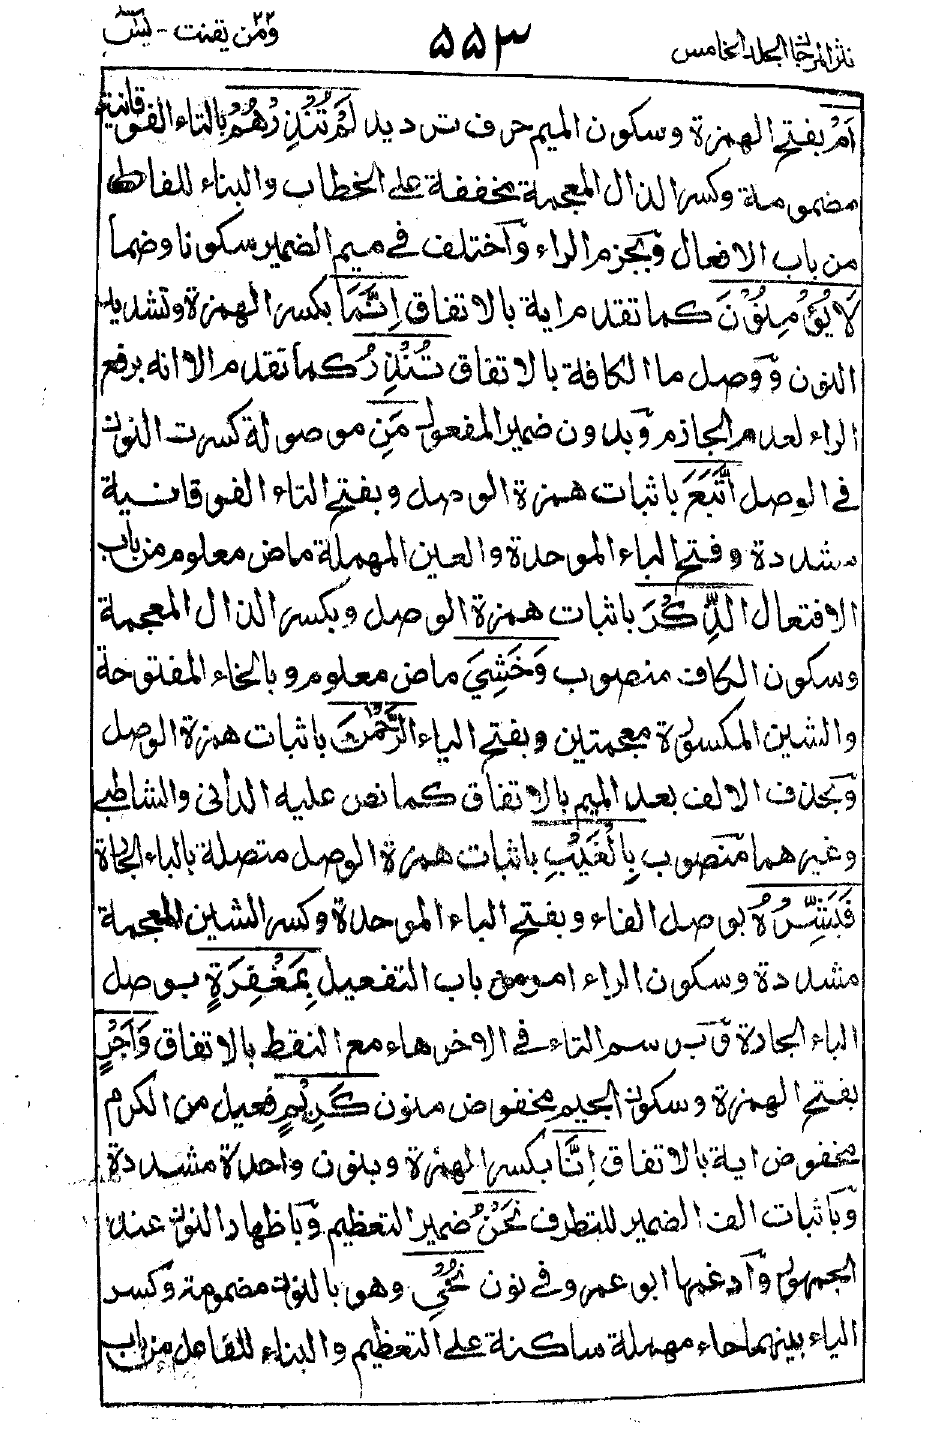 نثر المرجان المجلد الخامس ٥٥٣ ومن يقنت ٢٢ - يس
اَمْ بفتح الهمزة وسكون الميم حرف ترديد لَمْ تُنْذِرْهُمْ بالتاء الفوقانية
مضمومة وكسر الذال المعجمة مخففة على الخطاب والبناء للفاعل
من باب الافعال وبجزم الراء واختلف في ميم الضمير سكونا وضما
لَا يُؤْمِنُوْنَ كما تقدم اية بالاتفاق اِنَّمَا بكسر الهمزة وتشديد
النون ووصل ما الكافة بالاتفاق تُنْذِرُ كما تقدم الا انه برفع
الراء لعدم الجازم وبدون ضمير المفعول مَنِ موصولة كسرت النون
في الوصل اتَّبَعَ باثبات همزة الوصل وبفتح التاء الفوقانية
مشددة وفتح الباء الموحدة والعين المهملة ماض معلوم من باب
الافتعال الذِّكْرَ باثبات همزة الوصل وبكسر الذال المعجمة
وسكون الكاف منصوب وَخَشِيَ ماض معلوم وبالخاء المفتوحة
والشين المكسورة معجمتين وبفتح الياء الرَّحْمٰنَ باثبات همزة الوصل
وبحذف الالف بعد الميم بالاتفاق كما نص عليه الداني والشاطبي
وغيرهما منصوب بِالْغَيْبِ باثبات همزة الوصل متصلة بالباء الجارة
فَبَشِّرْهُ بوصل الفاء وبفتح الباء الموحدة وكسر الشين المعجمة
مشددة وسكون الراء امر من باب التفعيل بِمَغْفِرَةٍ بوصل
الباء الجارة وبرسم التاء في الاخر هاء مع النقط بالاتفاق وَاَجْرٍ
بفتح الهمزة وسكون الجيم مخفوض منون كَرِيْمٍ فعيل من الكرم
مخفوض اية بالاتفاق اِنَّا بكسر الهمزة وبنون واحدة مشددة
وباثبات الف الضمير للتطرف نَحْنُ ضمير التعظيم وباظهار النون عند
الجمهور وادغمها ابو عمرو في نون نُحْيِ وهو بالنون مضمومة وكسر
الياء بينهما حاء مهملة ساكنة على التعظيم والبناء للفاعل من باب